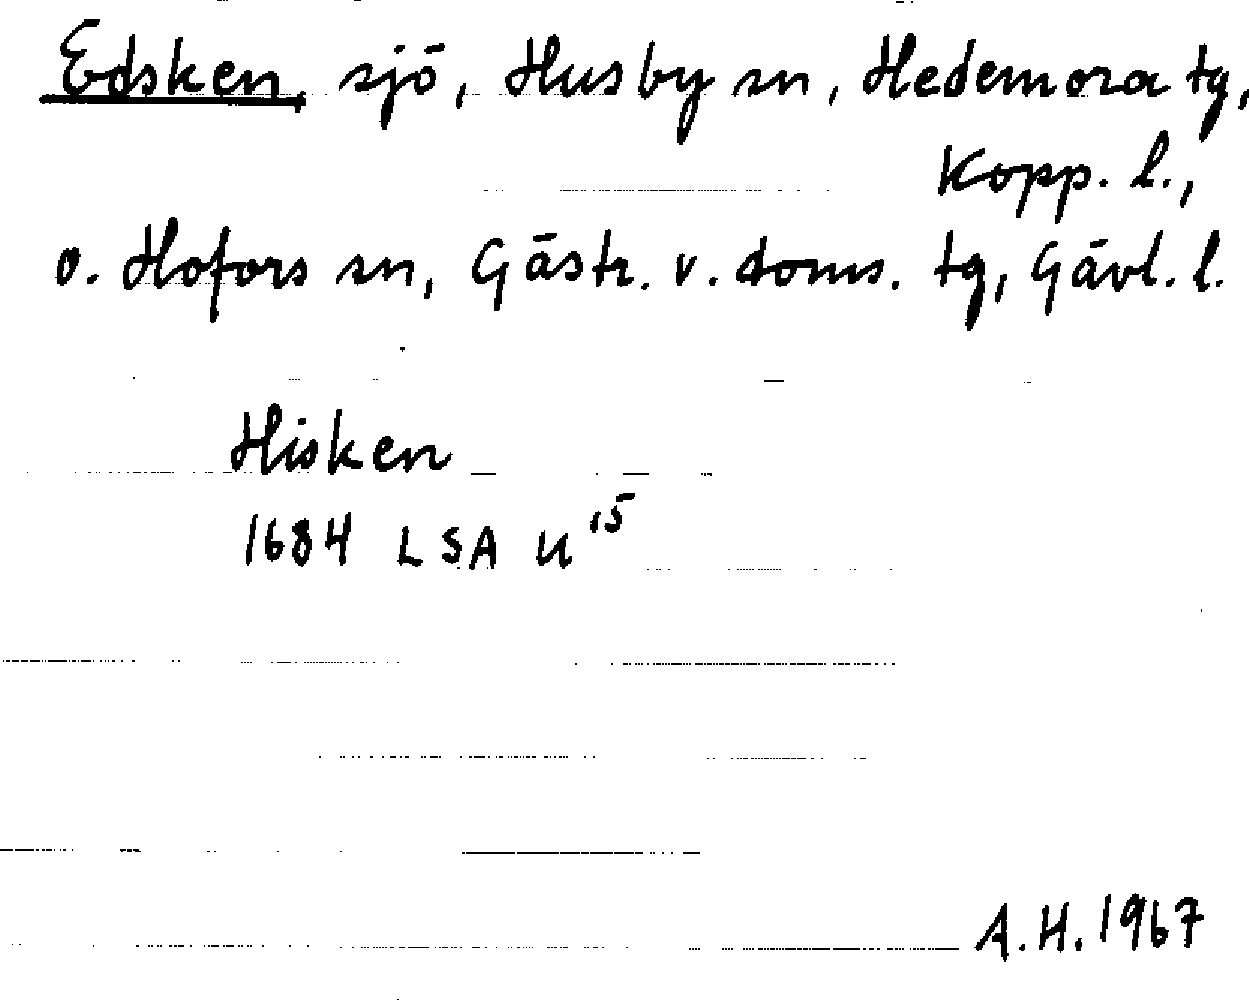 Edsken, sjö, Husby sn, Hedemora tg,
Kopp. l.,
o. Hofors sn, Gästr. v. doms. tg, Gävl. l.
Hisken
1684 LSA U 15
A.H. 1967